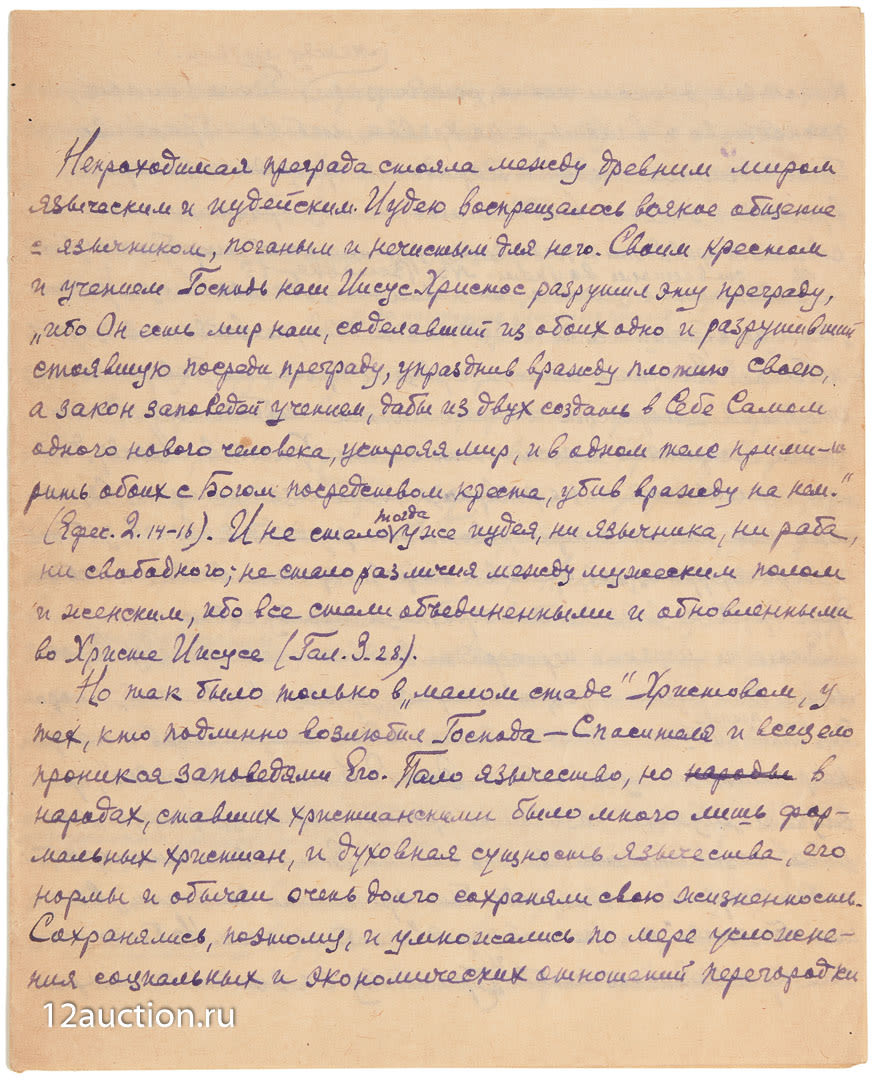 Непроходимая преграда стояла между древним миром
языческим и иудейским. Иудею воспрещалось всякое общение
с язычником, поганым и нечистым для него. Своим крестом
и учением Господь наш Иисус Христос разрушил эту преграду,
„ибо Он есть мир наш, соделавший из обоих одно и разрушивший
стоявшую посреди преграду, упразднив вражду плотию Своею,
а закон заповедей учением, дабы из двух создать в Себе Самом
одного нового человека, устрояя мир, и в одном теле прими-
рить обоих с Богом посредством креста, убив вражду на нем.“
(Ефес. 2. 14-16). И не стало тогда уже иудея, ни язычника, ни раба,
ни свободного; не стало различия между мужеским полом
и женским, ибо все стали объединенными и обновленными
во Христе Иисусе (Гал. 3. 28.).
Но так было только в „малом стаде“ Христовом, у
тех, кто подлинно возлюбил Господа — Спасителя и всецело
проникся заповедями Его. Пало язычество, но народы в
народах, ставших христианскими было много лишь фор-
мальных христиан, и духовная сущность язычества, его
нормы и обычаи очень долго сохраняли свою жизненность.
Сохранялись, поэтому, и умножались по мере усложне-
ния социальных и экономических отношений перегородки
12auction.ru